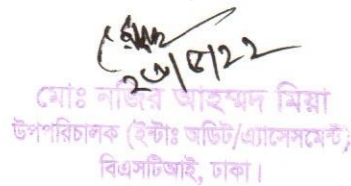 ২৩/৫/২২
মোঃ নজির আহম্মদ মিয়া
উপপরিচালক (ইন্টাঃ অডিট/এ্যাসেসমেন্ট)
বিএসটিআই, ঢাকা।